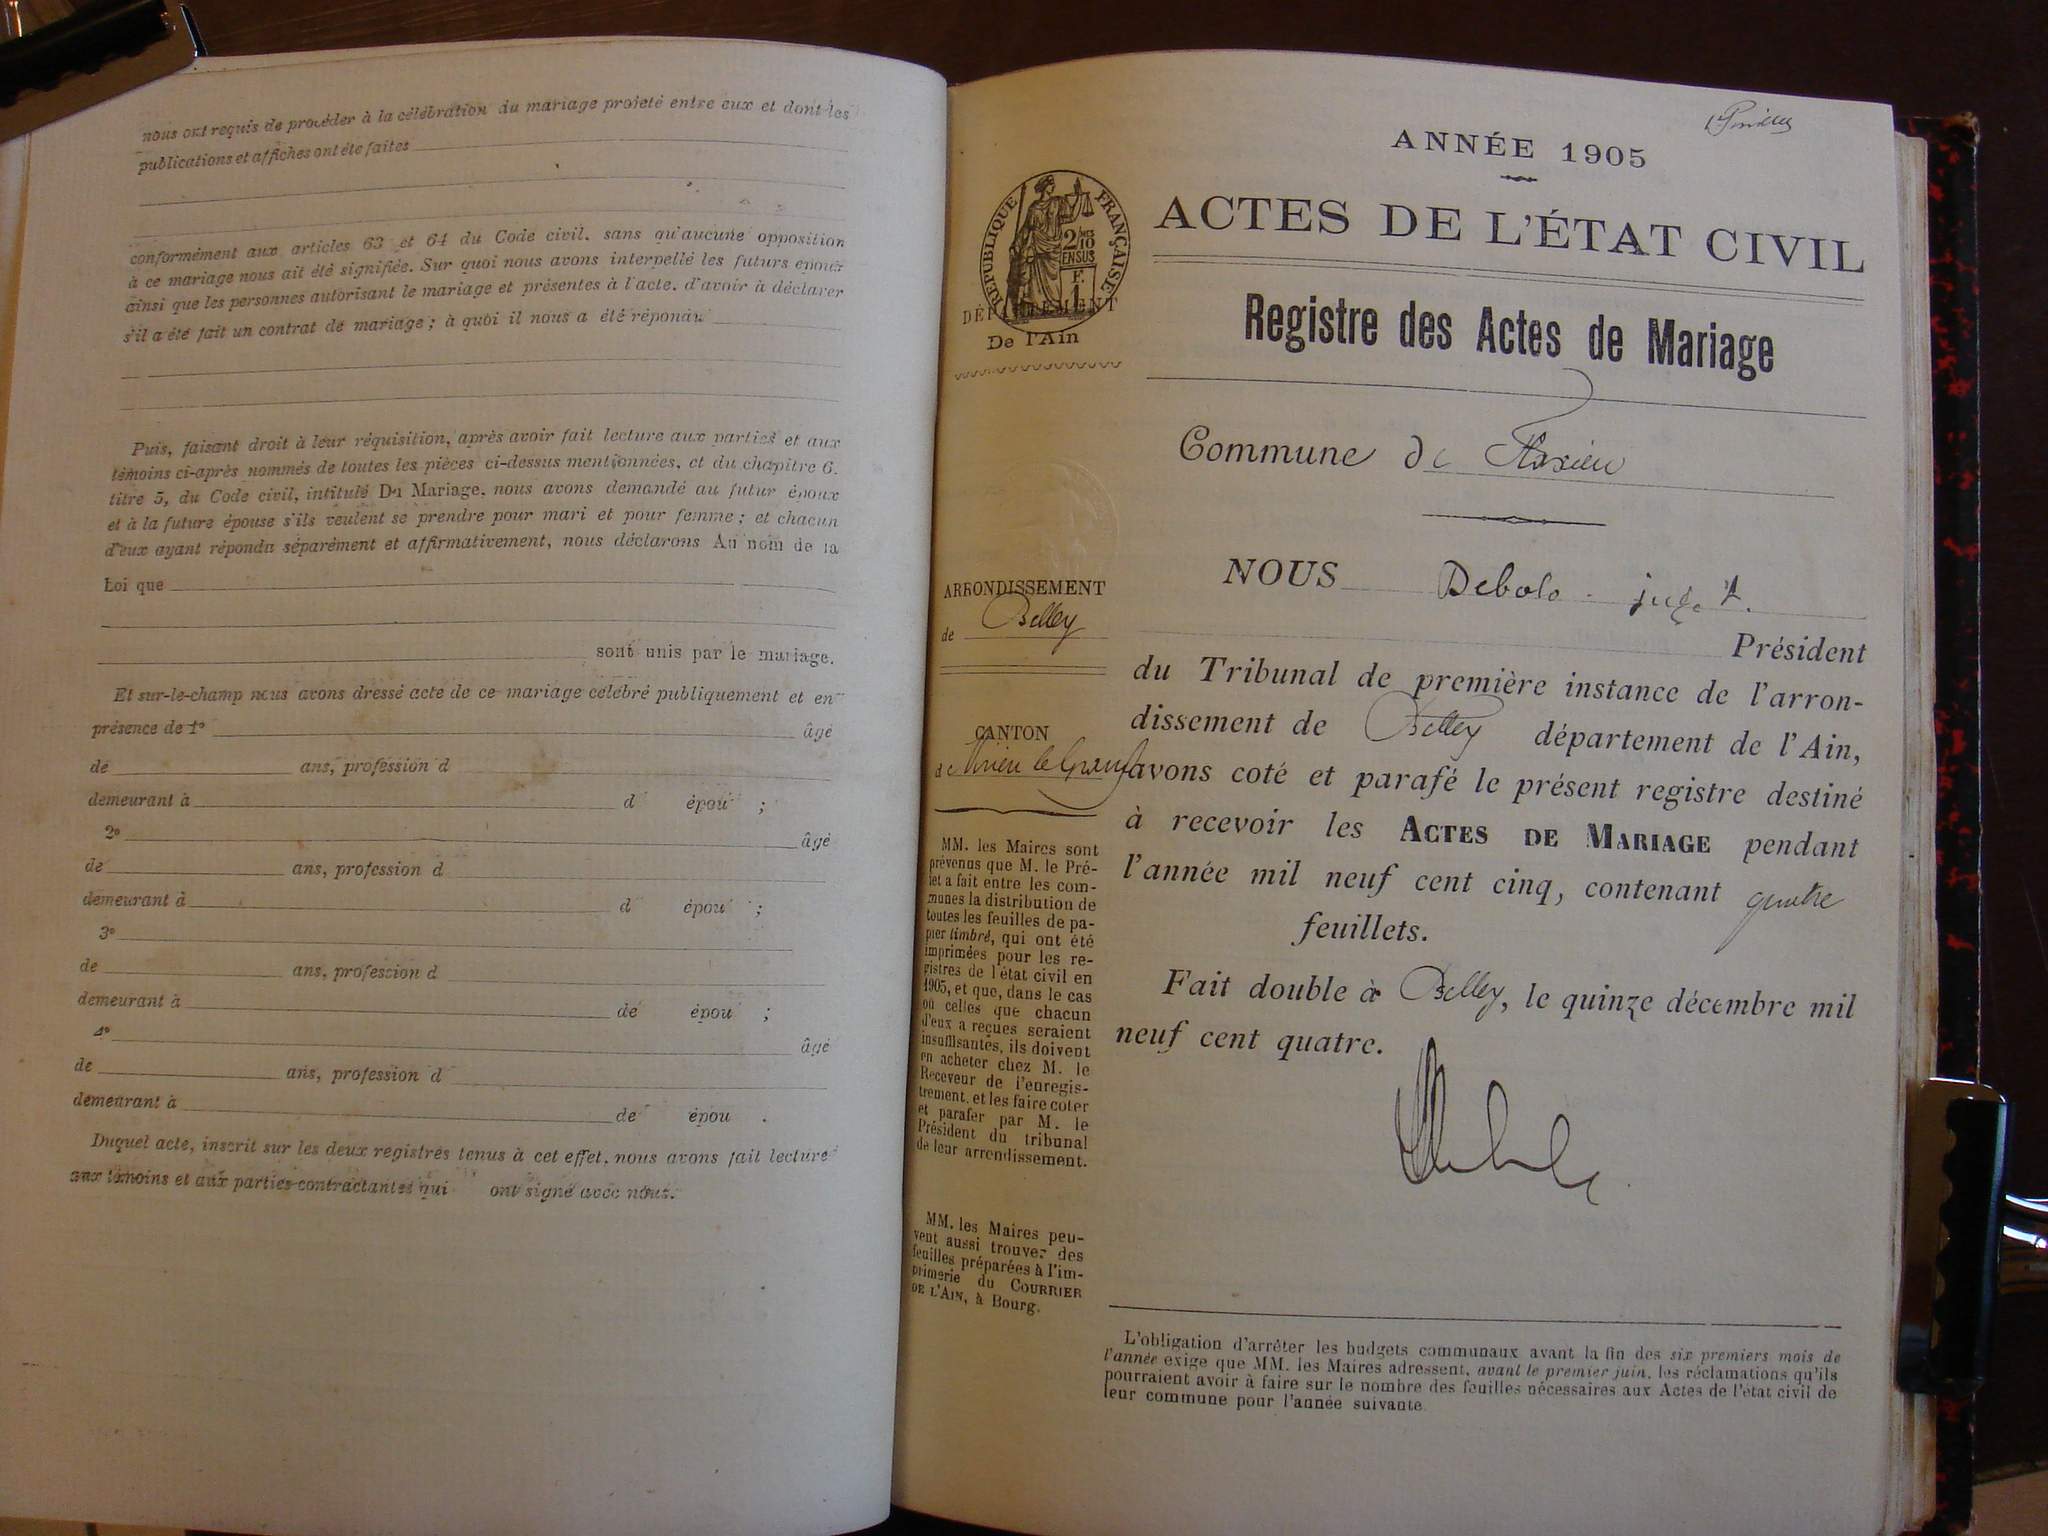 nous ont requis de procéder à la célébration du mariage projeté entre eux et dont les
publications et affiches ont été faites
conformément aux articles 63 et 64 du Code civil, sans qu'aucune opposition
à ce mariage nous ait été signifiée. Sur quoi nous avons interpellé les futurs époux
ainsi que les personnes autorisant le mariage et présentes à l'acte, d'avoir à déclarer
s'il a été fait un contrat de mariage ; à quoi il nous a été répondu
Puis, faisant droit à leur réquisition, après avoir fait lecture aux parties et aux
témoins ci-après nommés de toutes les pièces ci-dessus mentionnées, et du chapitre 6,
titre 5, du Code civil, intitulé Du Mariage, nous avons demandé au futur époux
et à la future épouse s'ils veulent se prendre pour mari et pour femme ; et chacun
d'eux ayant répondu séparément et affirmativement, nous déclarons Au nom de la
Loi que
sont unis par le mariage.
Et sur-le-champ nous avons dressé acte de ce mariage célébré publiquement et en
présence de 1° âgé
de ans, profession d
demeurant à d épou ;
2° âgé
de ans, profession d
demeurant à d épou ;
3°
de ans, profession d
demeurant à de épou ;
4° âgé
de ans, profession d
demeurant à de épou .
Duquel acte, inscrit sur les deux registres tenus à cet effet, nous avons fait lecture
aux témoins et aux parties contractantes qui ont signé avec nous.
ANNÉE 1905
ACTES DE L'ÉTAT CIVIL
RÉPUBLIQUE FRANÇAISE
2/10
EN SUS
F.
1
DÉPARTEMENT
De l'Ain
Registre des Actes de Mariage
Commune de
ARRONDISSEMENT
de Belley
CANTON
de Virieu le Grand
MM. les Maires sont
prévenus que M. le Pré-
fet a fait entre les com-
munes la distribution de
toutes les feuilles de pa-
pier timbré, qui ont été
imprimées pour les re-
gistres de l'état civil en
1905, et que, dans le cas
où celles que chacun
d'eux a reçues seraient
insuffisantes, ils doivent
en acheter chez M. le
Receveur de l'enregis-
trement, et les faire coter
et parafer par M. le
Président du tribunal
de leur arrondissement.
MM. les Maires peu-
vent aussi trouver des
feuilles préparées à l'im-
primerie du COURRIER
DE L'AIN, à Bourg.
NOUS Debolo juge
Président
du Tribunal de première instance de l'arron-
dissement de Belley département de l'Ain,
avons coté et parafé le présent registre destiné
à recevoir les ACTES DE MARIAGE pendant
l'année mil neuf cent cinq, contenant quatre
feuillets.
Fait double à Belley, le quinze décembre mil
neuf cent quatre.
L'obligation d'arrêter les budgets communaux avant la fin des six premiers mois de
l'année exige que MM. les Maires adressent, avant le premier juin, les réclamations qu'ils
pourraient avoir à faire sur le nombre des feuilles nécessaires aux Actes de l'état civil de
leur commune pour l'année suivante.